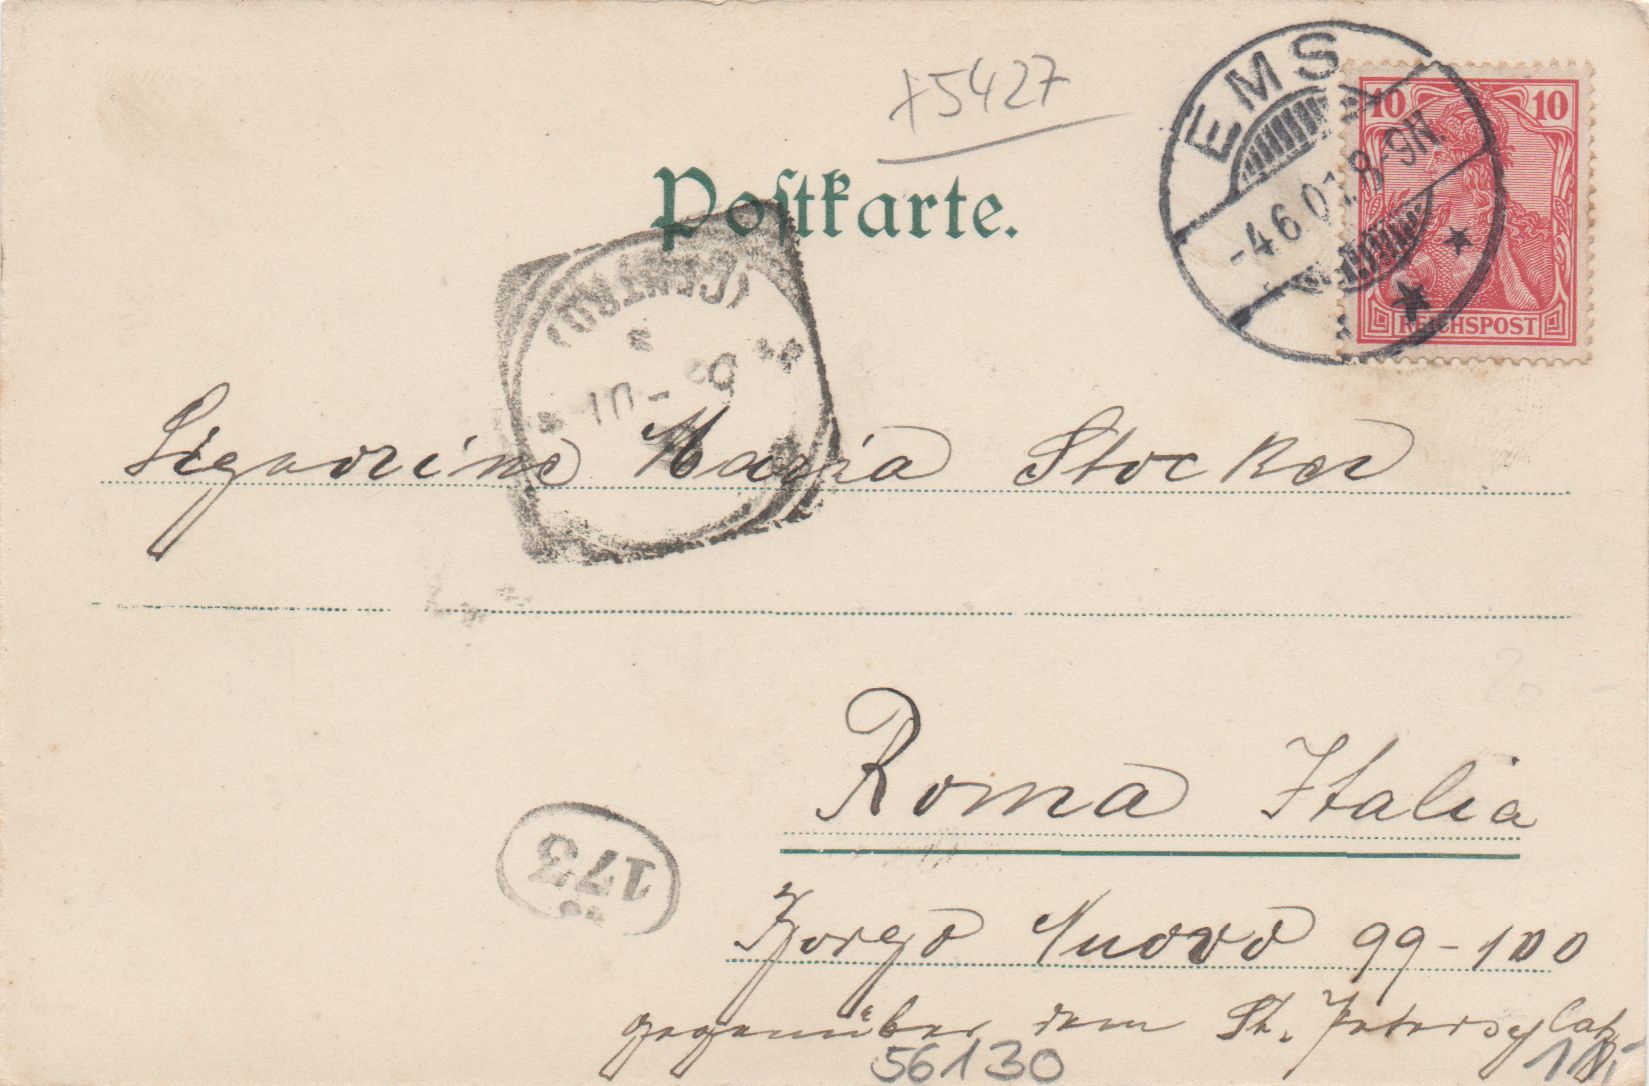 +5427
EMS
-4.6.01.8-9N.
10 10
REICHSPOST
Poſtkarte.
(CENTRO)
10-
Signorina Maria Stocker
Roma Italia
173
Borgo Nuovo 99-100
gegenüber dem St. Petersplatz
56130